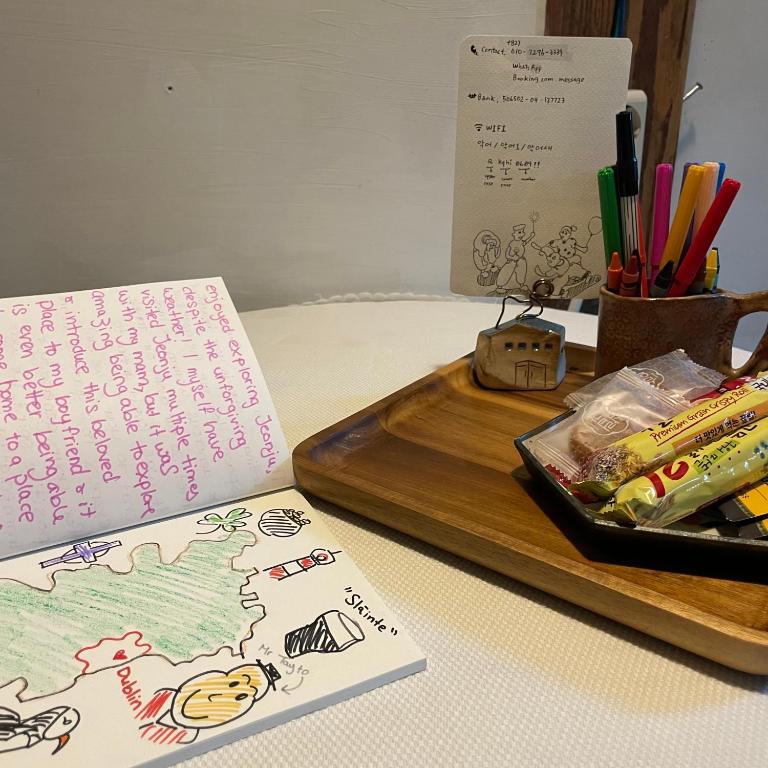 enjoyed exploring Jeonju,
despite the unforgiving
weather! I myself have
visited Jeonju multiple times
with my mam, but it was
amazing being able to explore
& introduce this beloved
place to my boyfriend & it
is even better being able
come home to a place
Dublin
Mr Tayto
"Sláinte"
+827
Contact. 010-7296-3339
WhatsApp
Booking.com message
Bank. 506502-04-137723
WIFI
악어 / 악어 I / 악어새
kghi 8689!!
Premium Grain Crispy Roll